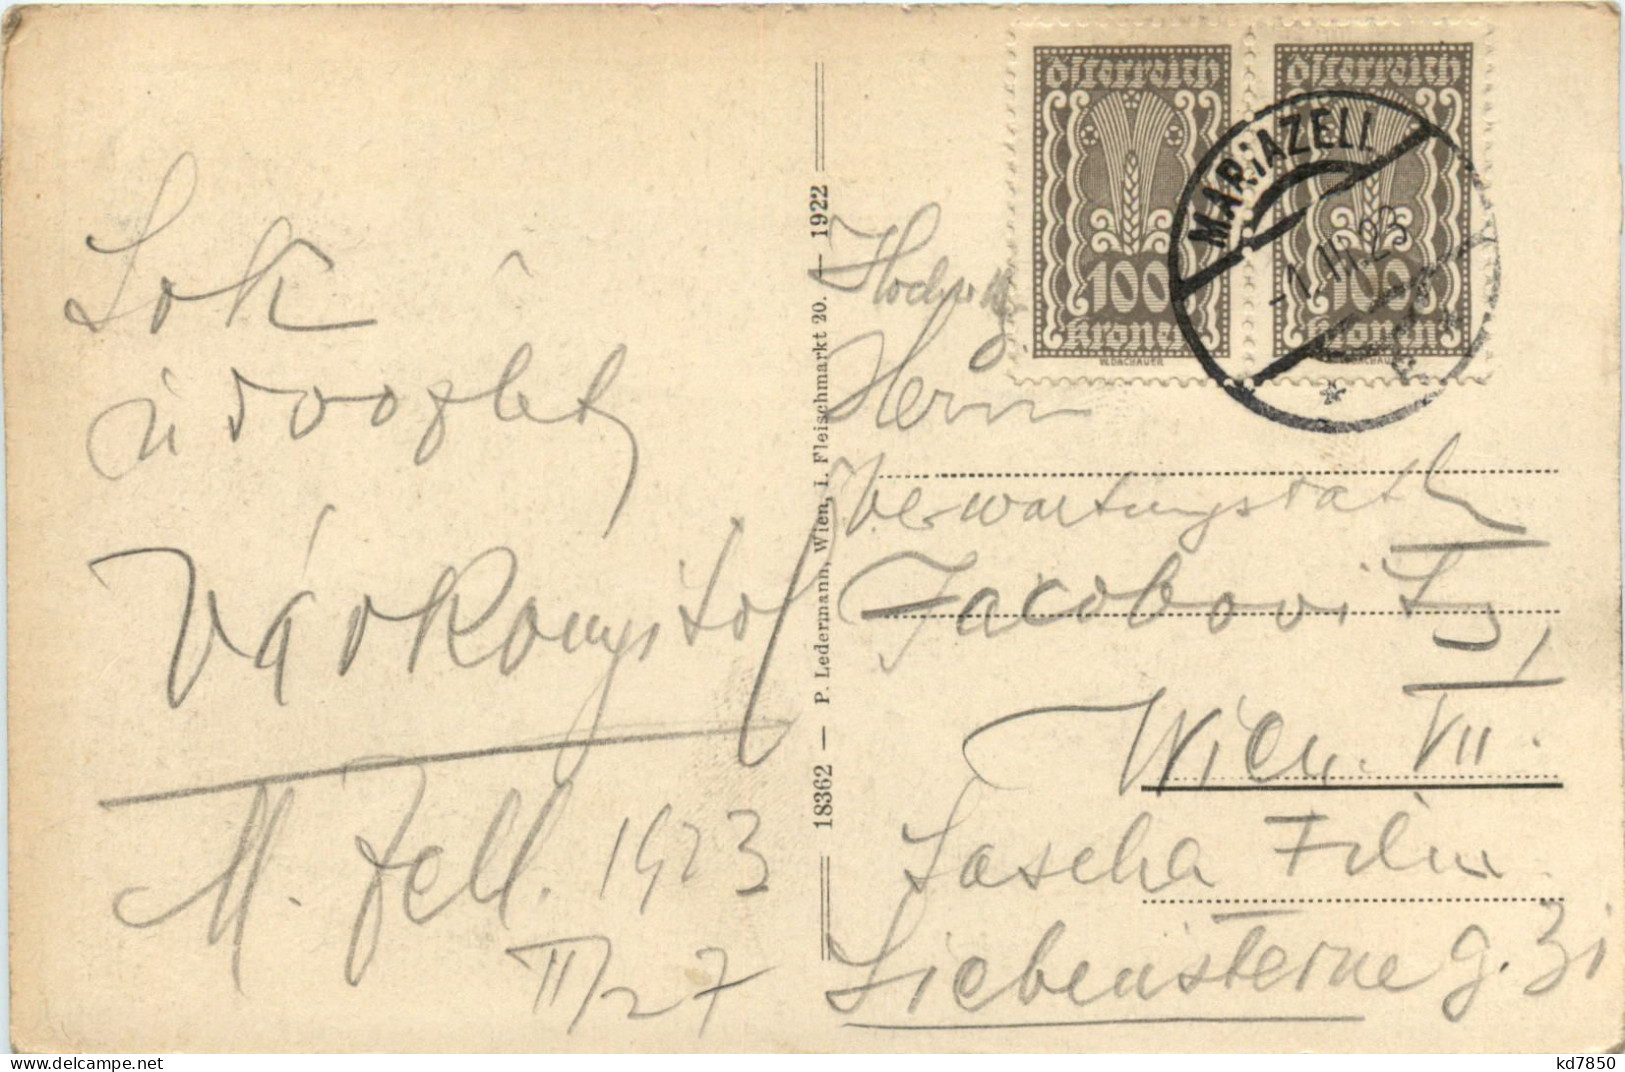 Sok
üdvözlet
Várkonyitol
M. Zell. 1923
II/27
18362 — P. Ledermann, Wien, I. Fleischmarkt 20. — 1922
österreich
100
Kronen
R.DACHAUER
österreich
100
Kronen
R.DACHAUER
MARIAZELL
-1.III.23
Herrn
Verwaltungsrath
Jacobovi
Wien. VII.
Sascha Film
Siebensterne g. 31
kd7850